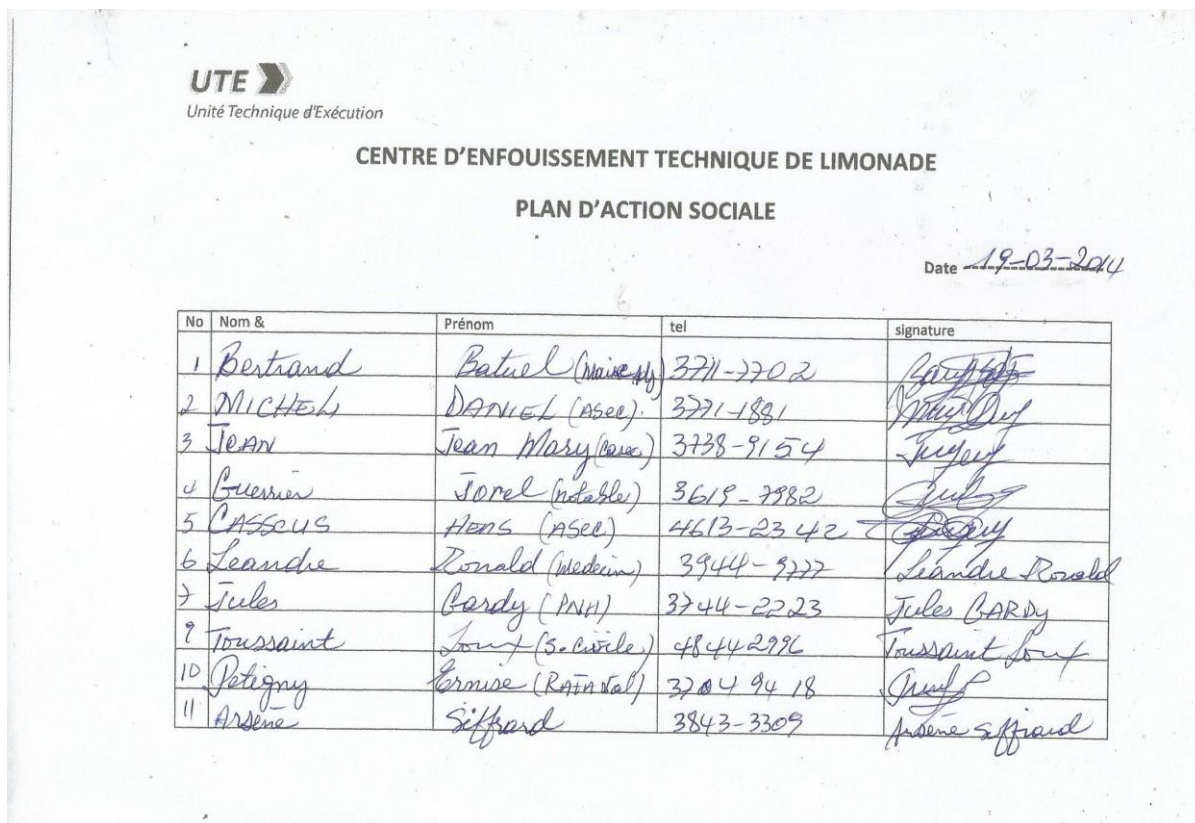 UTE
Unité Technique d'Exécution
CENTRE D'ENFOUISSEMENT TECHNIQUE DE LIMONADE
PLAN D'ACTION SOCIALE
Date 19-03-2014
No Nom & Prénom tel signature
1 Bertrand Batuel (Maire Adj) 3711-7702
2 MICHEL DANIEL (Asec). 3771-1881
3 JEAN Jean Mary (Casec) 3738-9154
4 Guerrier Jorel (notable) 3619-7982
5 CASSEUS HENS (ASec) 4613-2342
6 Leandre Ronald (Medecin) 3944-9777 Léandre Ronald
7 Jules Gardy (PNH) 3744-2223 Jules GARDY
9 Toussaint (S. Civile) 48442996 Toussaint
10 Petigny Ernise 3704 94 18
11 Arsène Siffrard 3843-3309 Arsène Siffrard